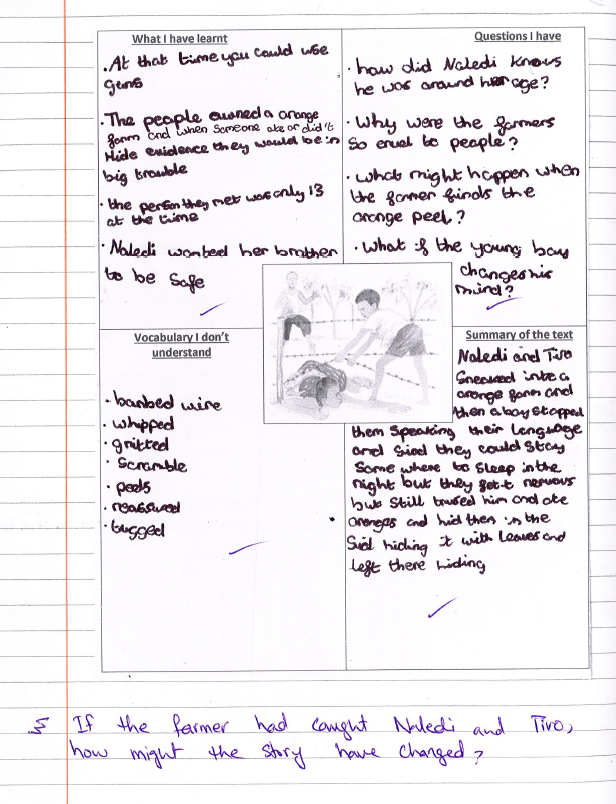 What I have learnt
. At that time you could use
guns
. The people owned a orange
farm and when someone ate or did't
Hide evidence they would be in
big trouble
. the person they met was only 13
at the time
. Naledi wanted her brother
to be safe
Questions I have
. how did Naledi knows
he was around her age?
. Why were the farmers
so cruel to people?
. what might happen when
the farmer finds the
orange peel?
. What if the young boy
changes his
mind?
Vocabulary I don't
understand
. barbed wire
. whipped
. gritted
. Scramble
. peels
. reassured
. tugged
Summary of the text
Naledi and Tiro
Sneaked into a
orange farm and
then a boy stopped
them speaking their language
and Siad they could stay
Some where to sleep in the
night but they got nervous
but still trused him and ate
oranges and hid then in the
Siol hiding it with leaves and
left there hiding
If the farmer had caught Naledi and Tiro,
how might the story have changed?